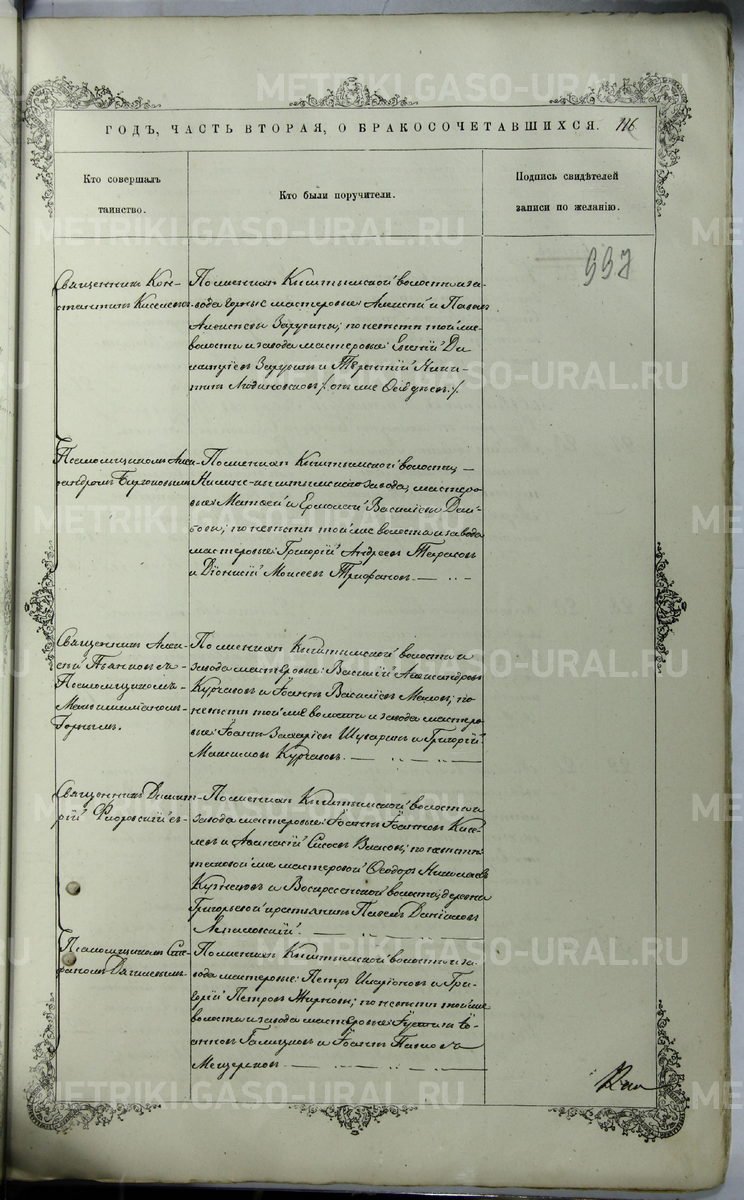 METRIKI.GASO-URAL.RU
ГОДЪ, ЧАСТЬ ВТОРАЯ, О БРАКОСОЧЕТАВШИХСЯ. 116
Кто совершалъ
таинство.
Кто были поручители.
Подпись свидѣтелей
записи по желанію.
997
Священникъ Кон-
стантинъ Киселевъ
По женихѣ Кыштымской волости и за-
вода горные мастеровые Алексѣй и Павелъ
Алексѣевы Зарубины; по невѣстѣ той же
волости и завода мастеровые: Евгеній Ди
митріевъ Зарубинъ и Терентій Ники-
тинъ
Псаломщикомъ Алек-
сандромъ Бирюковымъ
По женихѣ Кыштымской волости,
Нижне-Кыштымскаго завода, мастеро-
вые: Матѳей и Ермолай Васильевы
по невѣстѣ той же волости и завода
мастеровые: Григорій Андреевъ Тарасовъ
и Діонисій Моисеевъ Трифановъ.
Священникъ Алек-
сѣй Пьянковъ съ
Псаломщикомъ
Максимиліаномъ
Горнымъ.
По женихѣ Кыштымской волости и
завода мастеровые: Василій Александровъ
Курчавовъ и Іоаннъ Василіевъ Маловъ; по
невѣстѣ той же волости и завода мастеро-
вые: Іоаннъ Захаріевъ Шугаринъ и Григорій
Максимовъ Курчавовъ.
Священникъ Димит-
рій Флоровскій съ
По женихѣ Кыштымской волости и
завода мастеровые: Іоаннъ Іоанновъ Кисе-
левъ и Аѳанасій Сысоевъ Власовъ; по невѣстѣ
таковой же мастеровой Ѳеодоръ Николаевъ
Кузнецовъ и Воскресенской волости, деревни
Григорьевой крестьянинъ Павелъ Даніиловъ
Псаломщикомъ Сте-
фаномъ Дягилевымъ
По женихѣ Кыштымской волости и за-
вода мастеровые: Петръ Иларіоновъ и Гри-
горій Петровъ Жирновы; по невѣстѣ той же
волости и завода мастеровые: Іустинъ Іо-
анновъ Галицковъ и Іоаннъ Павловъ
Мещеряковъ